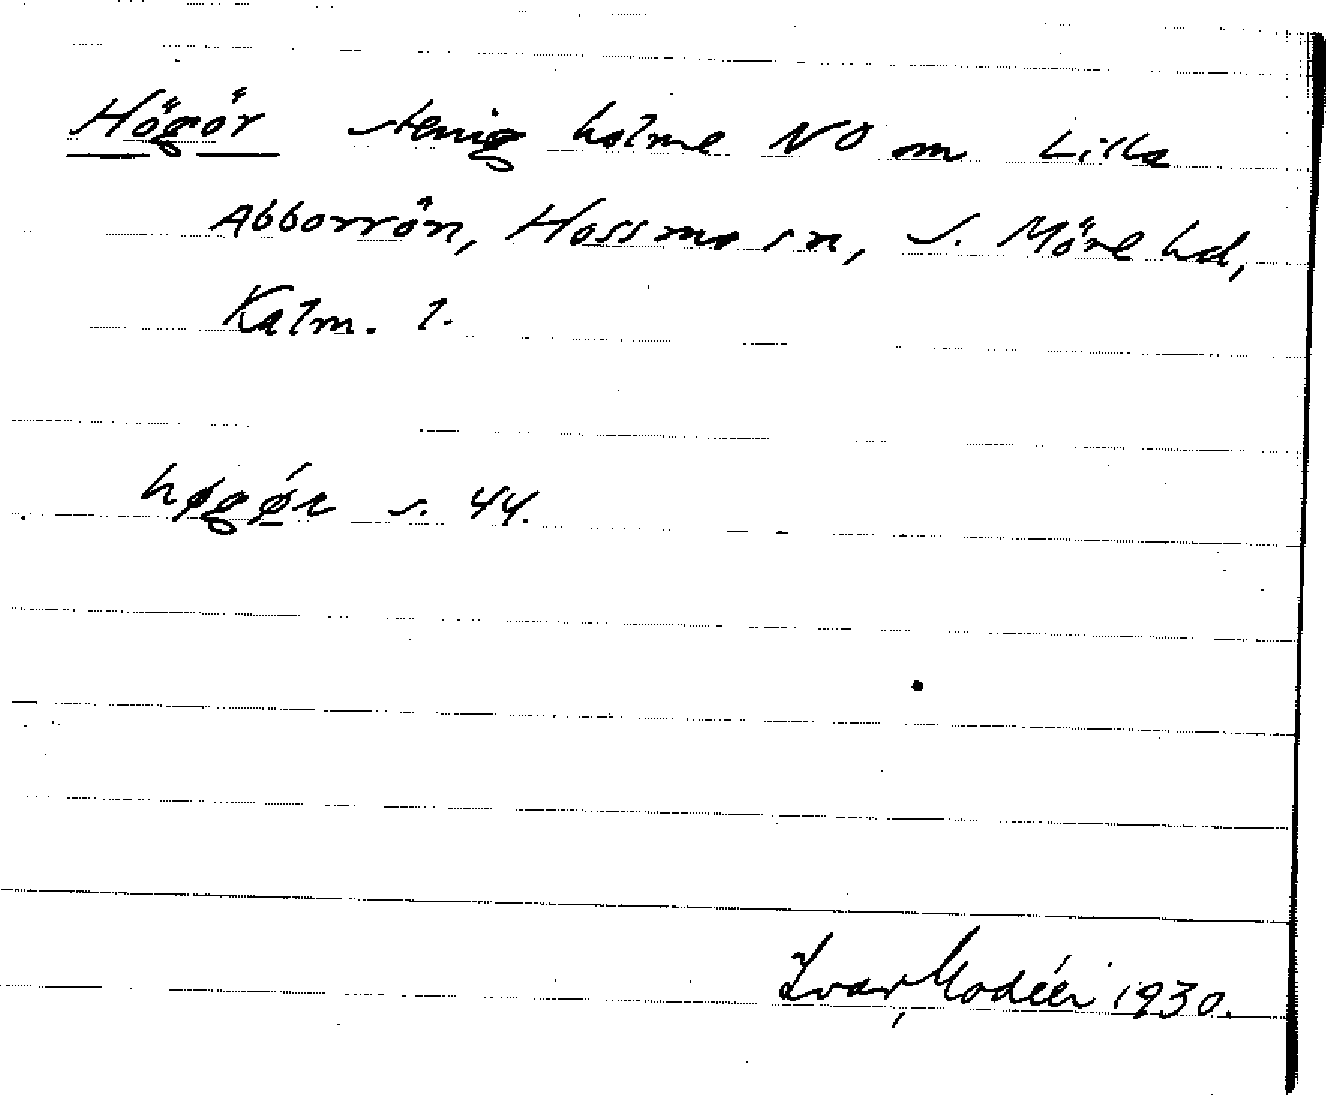 Högör stenig holme NO om Lilla
Abborrön, Hossmo sn, S. Möre hd,
Kalm. l.
høgǿr s. 44.
Ivar Modéer 1930.